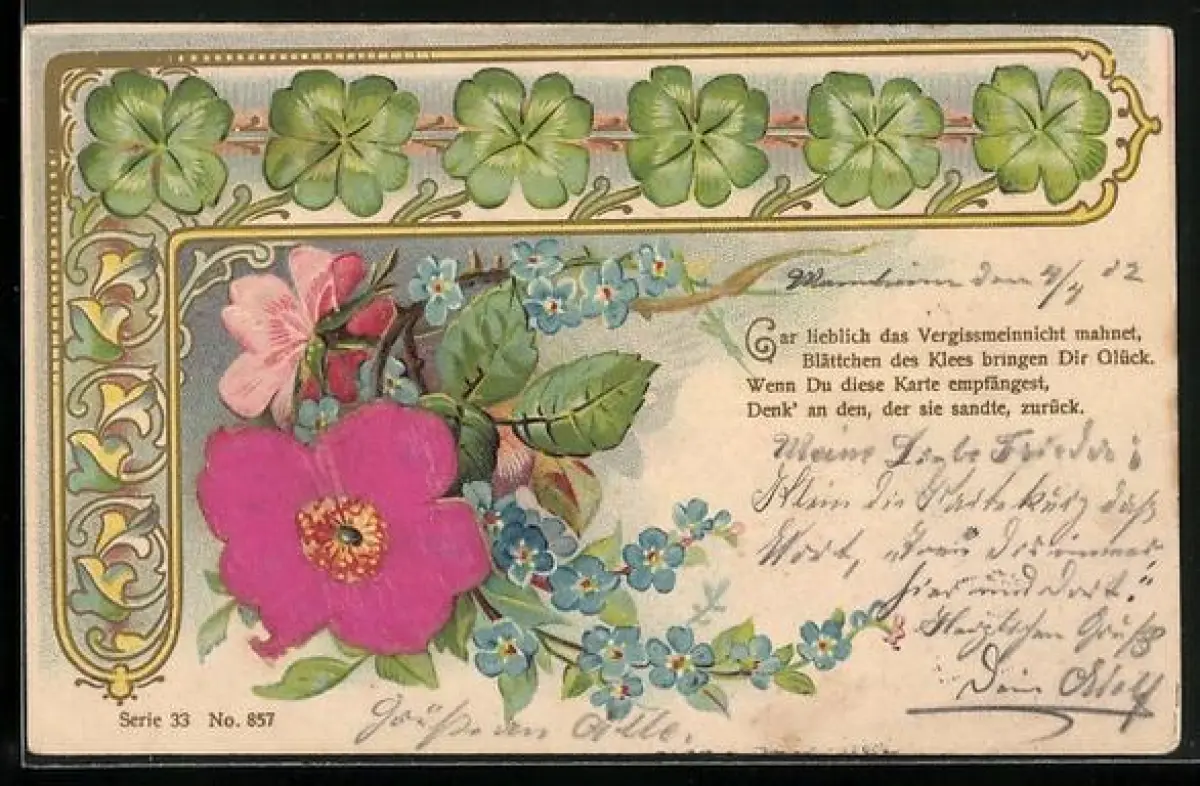 Mannheim den 4/4 02
Gar lieblich das Vergissmeinnicht mahnet,
Blättchen des Klees bringen Dir Glück.
Wenn Du diese Karte empfängest,
Denk' an den, der sie sandte, zurück.
Meine Liebe Frieda!
Klein die Karte kurz das
Wort, treu Dir immer
hier und dort."
Herzlichen Gruß
Dein Adolf
Grüße an Alle.
Serie 33 No. 857